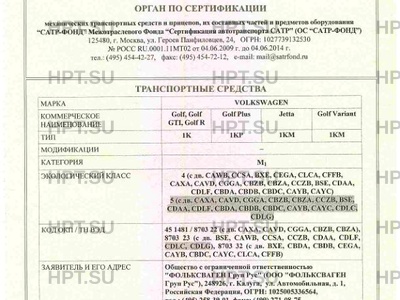 ОРГАН ПО СЕРТИФИКАЦИИ
механических транспортных средств и прицепов, их составных частей и предметов оборудования
"САТР-ФОНД" Межотраслевого Фонда "Сертификация автотранспорта САТР" (ОС "САТР-ФОНД")
125480, г. Москва, ул. Героев Панфиловцев, 24, ОГРН: 1027739132530
№ РОСС RU.0001.11МТ02 от 04.06.2009 г. до 04.06.2014 г.
тел.: (495) 454-42-27, факс: (495) 454-72-12, e-mail: mail@satrfond.ru
HPT.SU HPT.SU HPT.SU
ТРАНСПОРТНЫЕ СРЕДСТВА
МАРКА VOLKSWAGEN
КОММЕРЧЕСКОЕ НАИМЕНОВАНИЕ Golf, Golf GTI, Golf R Golf Plus Jetta Golf Variant
ТИП 1K 1KP 1KM 1KM
HPT.SU HPT.SU HPT.SU
МОДИФИКАЦИИ –
КАТЕГОРИЯ M1
ЭКОЛОГИЧЕСКИЙ КЛАСС 4 (с дв. CAWB, CCSA, BXE, CEGA, CLCA, CFFB,
CAXA, CAVD, CGGA, CBZB, CBZA, CCZB, BSE, CDAA,
CDLF, CBDA, CBDB, CBDC, CAYB, CAYC)
5 (с дв. CAXA, CAVD, CGGA, CBZB, CBZA, CCZB, BSE,
CDAA, CDLF, CBZB, CBDA, CBDB, CBDC, CAYB, CAYC, CDLC,
CDLG)
HPT.SU HPT.SU HPT.SU
КОД ОКП / ТН ВЭД 45 1481 / 8703 22 (с дв. CAVD, CEGA, CGGA, CBZB, CBZA),
8703 23 (с дв. BSE, CAWB, CCSA, CCZB, CDAA, CDLF,
CDLC, CDLG), 8703 32 (с дв. BXE, CBDA, CBDB, CEGA,
CAYB, CBDC, CAYC, CLCA, CFFB)
ЗАЯВИТЕЛЬ И ЕГО АДРЕС Общество с ограниченной ответственностью
"ФОЛЬКСВАГЕН Груп Рус" (ООО "ФОЛЬКСВАГЕН
Груп Рус"), 248926, г. Калуга, ул. Автомобильная, д. 1,
Российская Федерация, ОГРН: 1025005336564,
HPT.SU HPT.SU HPT.SU